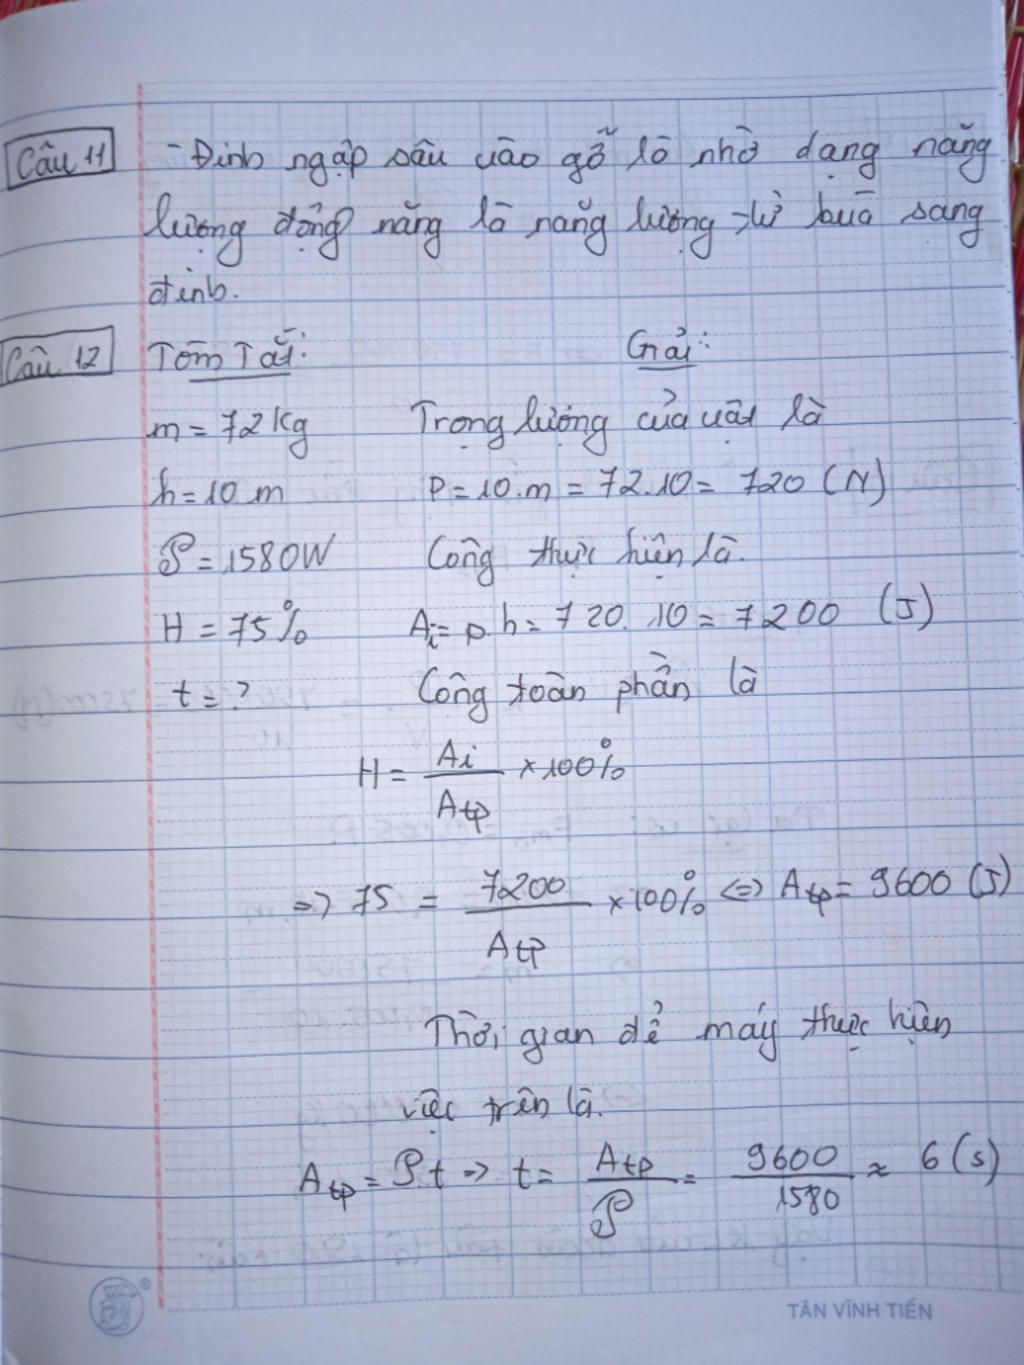 Câu 11
- Đinh ngập sâu vào gỗ là nhờ dạng năng
lượng động năng là năng lượng từ búa sang
đinh.
Câu 12
Tóm Tắt:
Giải:
m = 72 kg
Trọng lượng của vật là
h = 10 m
P = 10.m = 72.10 = 720 (N)
𝒫 = 1580W
Công thực hiện là.
H = 75%
Ai = p.h = 720.10 = 7200 (J)
t = ?
Công toàn phần là
H = Ai / Atp × 100%
=> 75 = 7200 / Atp × 100% <=> Atp = 9600 (J)
Thời gian để máy thực hiện
việc trên là.
Atp = 𝒫.t => t = Atp / 𝒫 = 9600 / 1580 ≈ 6 (s)
TÂN VĨNH TIẾN